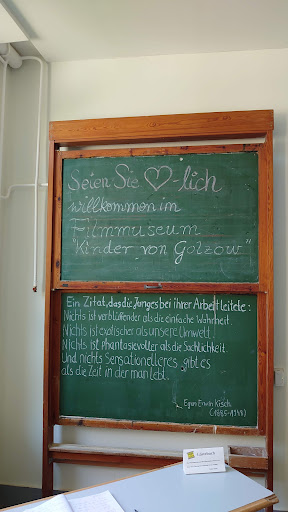 Seien Sie ♡-lich
willkommen im
Filmmuseum
"Kinder von Golzow"
Ein Zitat, das die Junges bei ihrer Arbeit leitete:
Nichts ist verblüffender als die einfache Wahrheit.
Nichts ist exotischer als unsere Umwelt.
Nichts ist phantasievoller als die Sachlichkeit.
Und nichts Sensationelleres gibt es
als die Zeit in der man lebt.
Egon Erwin Kisch
(1885-1948)
Gästebuch